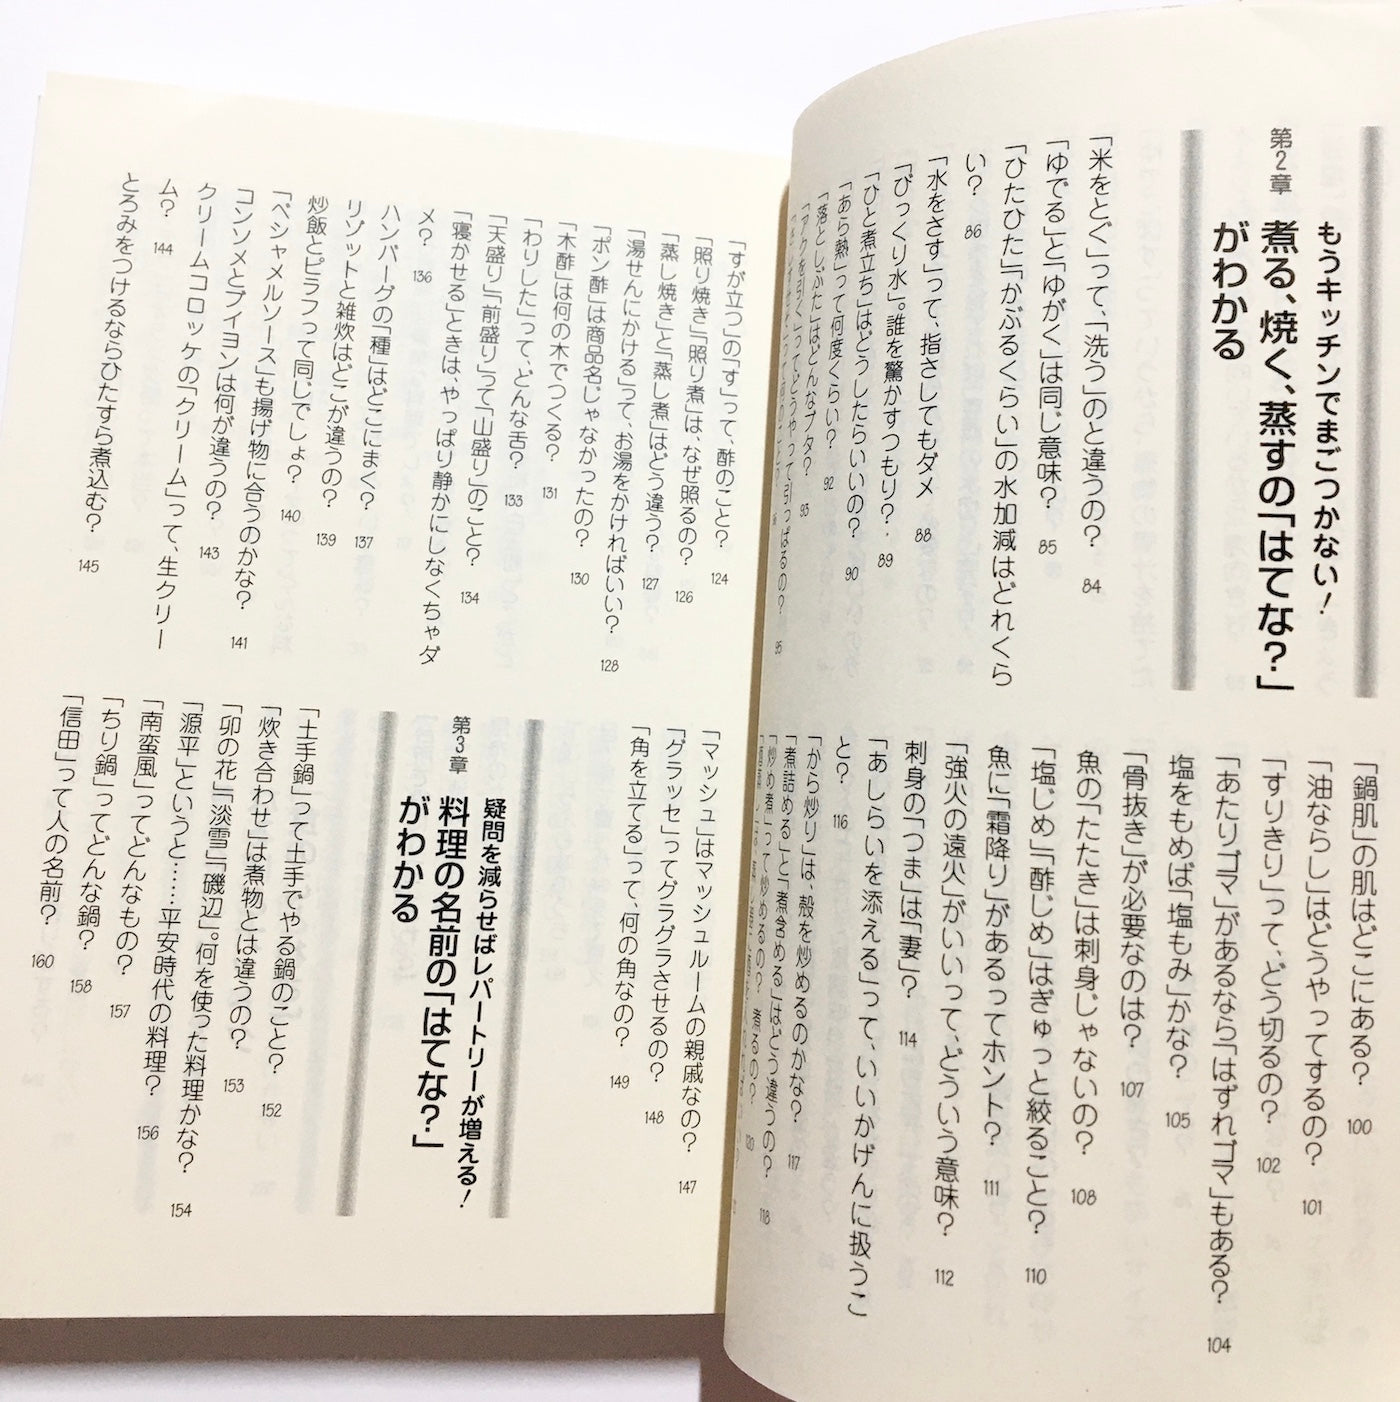 第2章
もうキッチンでまごつかない!
煮る、焼く、蒸すの「はてな?」
がわかる
「米をとぐ」って、「洗う」のと違うの? 84
「ゆでる」と「ゆがく」は同じ意味? 85
「ひたひた」「かぶるくらい」の水加減はどれくら
い? 86
「水をさす」って、指さしてもダメ 88
「びっくり水」。誰を驚かすつもり? 89
「ひと煮立ち」はどうしたらいいの? 90
「あら熱」って何度くらい? 92
「落としぶた」はどんなブタ? 93
「アクを引く」ってどうやって引っぱるの? 95
「鍋肌」の肌はどこにある? 100
「油ならし」はどうやってするの? 101
「すりきり」って、どう切るの? 102
「あたりゴマ」があるなら「はずれゴマ」もある? 104
塩をもめば「塩もみ」かな? 105
「骨抜き」が必要なのは? 107
魚の「たたき」は刺身じゃないの? 108
「塩じめ」「酢じめ」はぎゅっと絞ること? 110
魚に「霜降り」があるってホント? 111
「強火の遠火」がいいって、どういう意味? 112
刺身の「つま」は「妻」? 114
「あしらいを添える」って、いいかげんに扱うこ
と? 116
「から炒り」は、殻を炒めるのかな? 117
「煮詰める」と「煮含める」はどう違うの? 118
「炒め煮」って炒めるの? 煮るの? 120
「すが立つ」の「す」って、酢のこと? 124
「照り焼き」「照り煮」は、なぜ照るの? 126
「蒸し焼き」と「蒸し煮」はどう違う? 127
「湯せんにかける」って、お湯をかければいい? 128
「ポン酢」は商品名じゃなかったの? 130
「木酢」は何の木でつくる? 131
「わりした」って、どんな舌? 133
「天盛り」「前盛り」って「山盛り」のこと? 134
「寝かせる」ときは、やっぱり静かにしなくちゃダ
メ? 136
ハンバーグの「種」はどこにまく? 137
リゾットと雑炊はどこが違うの? 139
炒飯とピラフって同じでしょ? 140
「ベシャメルソース」も揚げ物に合うのかな? 141
コンソメとブイヨンは何が違うの? 143
クリームコロッケの「クリーム」って、生クリー
ム? 144
とろみをつけるならひたすら煮込む? 145
「マッシュ」はマッシュルームの親戚なの? 147
「グラッセ」ってグラグラさせるの? 148
「角を立てる」って、何の角なの? 149
第3章
疑問を減らせばレパートリーが増える!
料理の名前の「はてな?」
がわかる
「土手鍋」って土手でやる鍋のこと? 152
「炊き合わせ」は煮物とは違うの? 153
「卯の花」「淡雪」「磯辺」。何を使った料理かな? 154
「源平」というと……平安時代の料理? 156
「南蛮風」ってどんなもの? 157
「ちり鍋」ってどんな鍋? 158
「信田」って人の名前? 160